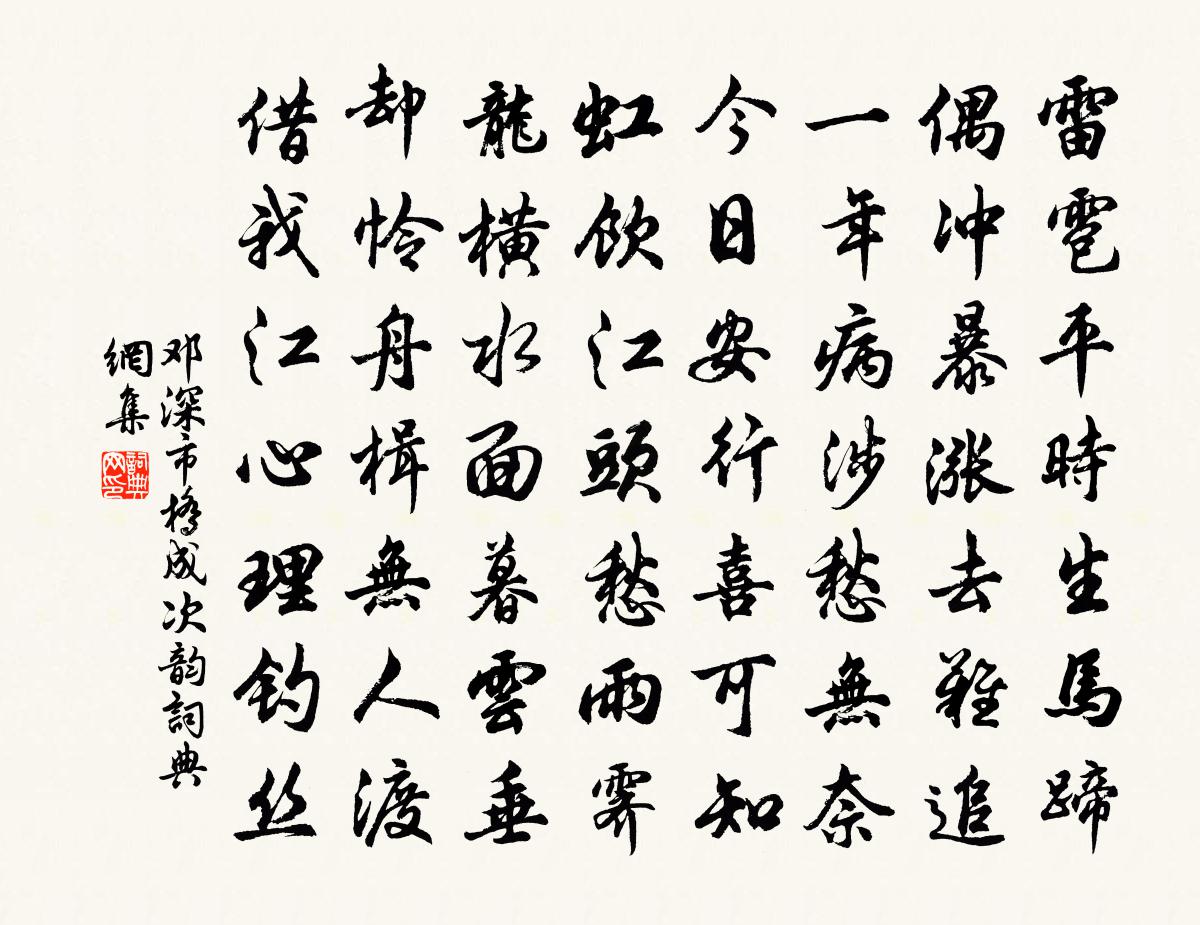 雷雹平時生馬蹄
偶沖暴漲去難追
一年病涉愁無奈
今日安行喜可知
虹飲江頭愁雨霽
龍橫水面暮雲垂
却憐舟楫無人渡
借我江心理釣丝
邓深市橋成次韵詞典
網集
詞典
网印